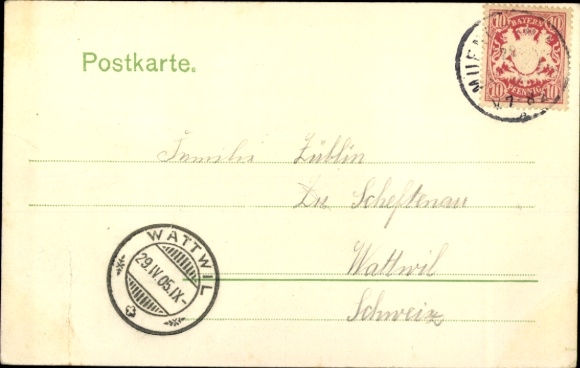 Postkarte.
10 BAYERN 10
10 PFENNIG 10
Familie Züblin
Scheftenau
Wattwil
Schweiz
WATTWIL
29.IV.05.IX-